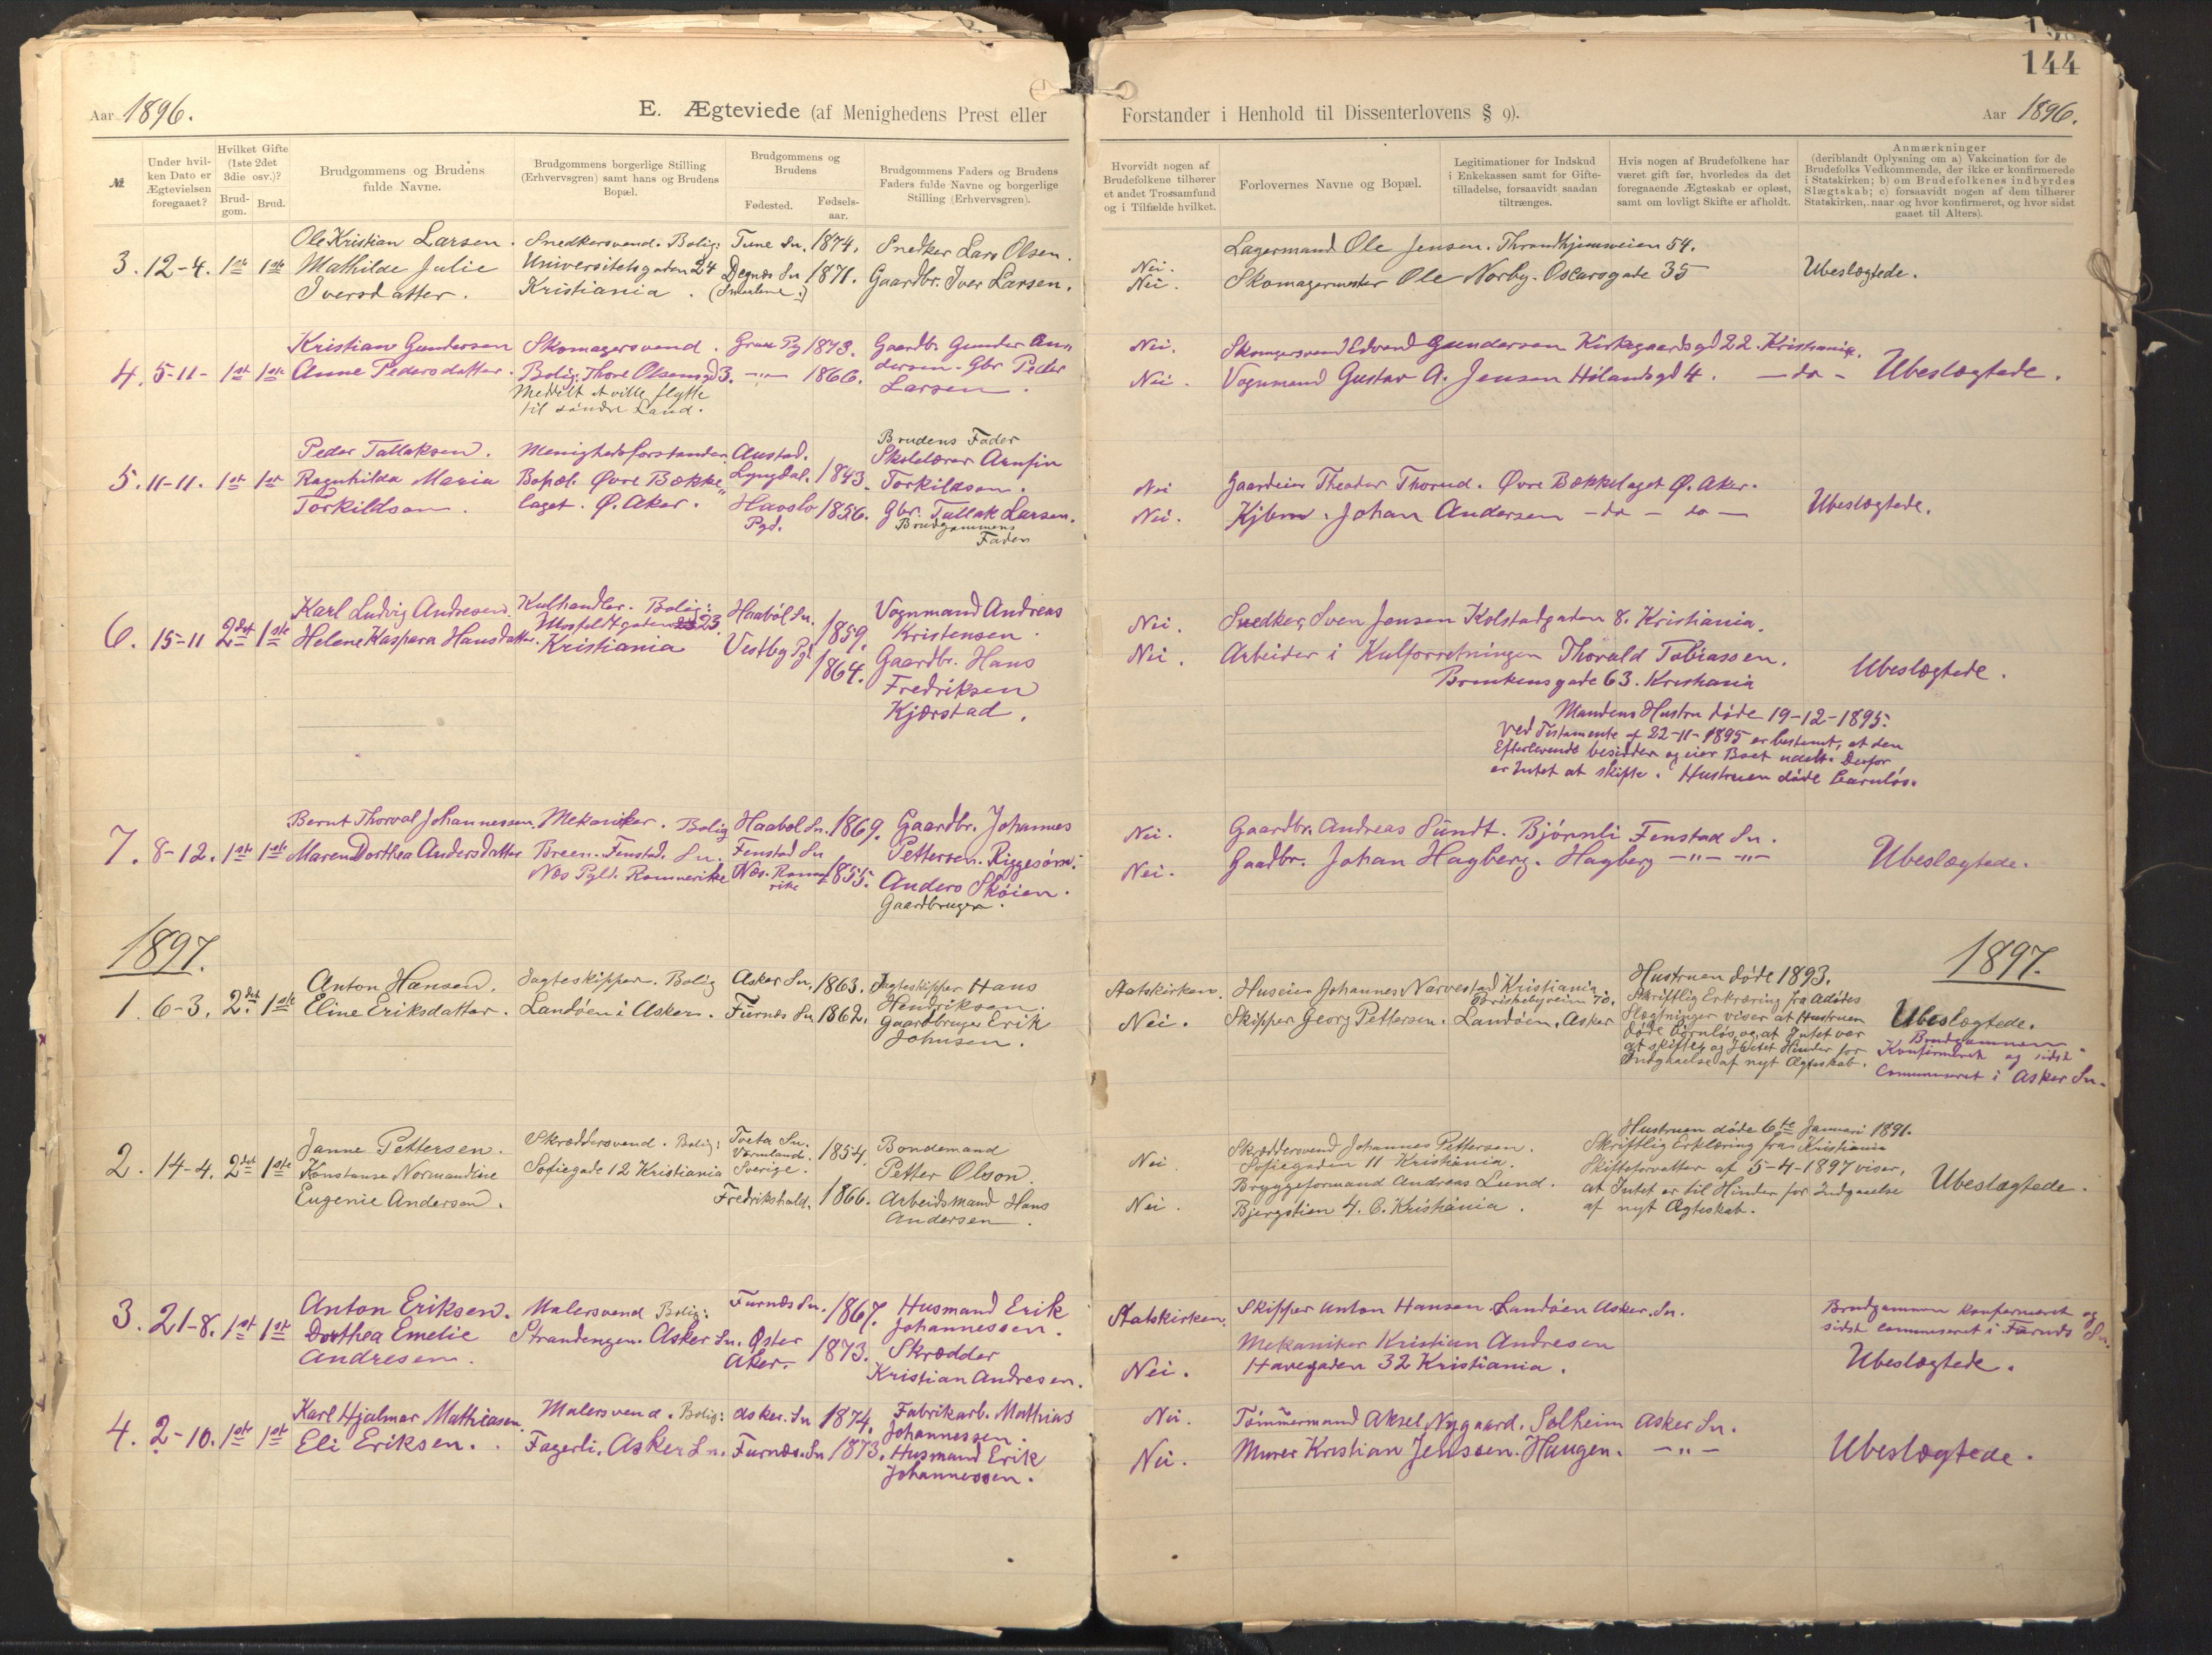 144
Aar 1896.
E. Ægteviede (af Menighedens Prest eller
Forstander i Henhold til Dissenterlovens § 9).
Aar 1896.
№
Under hvil-
ken Dato er
Ægtevielsen
foregaaet?
Hvilket Gifte
(1ste 2det
3die osv.)?
Brud-
gom.
Brud.
Brudgommens og Brudens
fulde Navne.
Brudgommens borgerlige Stilling
(Erhvervsgren) samt hans og Brudens
Bopæl.
Brudgommens og
Brudens
Fødested.
Fødsels-
aar.
Brudgommens Faders og Brudens
Faders fulde Navne og borgerlige
Stilling (Erhvervsgren).
Hvorvidt nogen af
Brudefolkene tilhører
et andet Trossamfund
og i Tilfælde hvilket.
Forlovernes Navne og Bopæl.
Legitimationer for Indskud
i Enkekassen samt for Gifte-
tilladelse, forsaavidt saadan
tiltrænges.
Hvis nogen af Brudefolkene har
været gift før, hvorledes da det
foregaaende Ægteskab er opløst,
samt om lovligt Skifte er afholdt.
Anmærkninger
(deriblandt Oplysning om a) Vakcination for de
Brudefolks Vedkommende, der ikke er konfirmerede
i Statskirken; b) om Brudefolkenes indbyrdes
Slægtskab; c) forsaavidt nogen af dem tilhører
Statskirken, naar og hvor konfirmeret, og hvor sidst
gaaet til Alters).
3. 12-4. 1ste 1ste
Ole Kristian Larsen.
Mathilde Julie
Iversdatter.
Snedkersvend. Bolig:
Universitetsgaden 24
Kristiania.
Tune Sn. 1874.
Degnes Sn 1871.
Snedker Lars Olsen.
Gaardbr. Iver Larsen.
Nei.
Nei.
Lagermand Ole Jensen. Throndhjemsveien 54.
Skomagermester Ole Norby. Oscarsgade 35
Ubeslægtede.
4. 5-11- 1ste 1ste
Kristian Gundersen
Anne Pedersdatter.
Skomagersvend.
Bolig: Thore Olsensgd 3.
Meddelt at ville flytte
til søndre Land.
Gran Pg 1873.
-"- 1866.
Gaardbr. Gunder An-
dersen. Gbr Peder
Larsen.
Nei.
Nei.
Skomagersvend Edvard Gundersen Kirkegaardsgd 22. Kristiania.
Vognmand Gustav A. Jensen Hølandsgd 4. -do-
Ubeslægtede.
5. 11-11. 1ste 1ste
Peder Tallaksen.
Ragnhilda Maria
Torkildsen.
Menighedsforstander
Bopæl. Øvre Bække
laget. Ø. Aker.
Austad.
Lyngdal. 1843.
Havslo 1856.
Pgd.
Brudens Fader
Skolelærer Arnfin
Torkildsen.
Gbr. Tallak Larsen.
Brudgommens
Fader
Nei
Nei.
Gaardeier Theodor Thorud. Øvre Bækkelaget Ø. Aker.
Kjbm. Johan Andersen -do- do-
Ubeslægtede.
6. 15-11 2det 1ste
Karl Ludvig Andresen.
Helene Kaspara Hansdatter.
Kulhandler. Bolig:
23.
Kristiania
Haabøl Sn. 1859.
Vestby Pgl 1864.
Vognmand Andreas
Kristensen.
Gaardbr. Hans
Fredriksen
Kjærstad.
Nei.
Nei.
Snedker, Sven Jensen Kolstadgaden 8. Kristiania.
Arbeider i Kulforretningen Thorald Tobiassen.
63. Kristiania
Ubeslægtede.
Mandens Hustru døde 19-12-1895.
Ved Testamente af 22-11-1895 er bestemt, at den
Efterlevende besidder og eier Boet udelt. Derfor
er Intet at skifte. Hustruen døde barnløs.
7. 8-12. 1ste 1ste
Bernt Thorval Johannessen.
Maren Dorthea Andersdatter
Mekaniker. Bolig
Breen. Fenstad. Sn.
Næs Pgld. Romerike
Haabøl Sn. 1869.
Fenstad Sn
Næs. Rome-
rike 1855.
Gaardbr. Johannes
Pettersen. Riggesøm.
Anders Skøien.
Gaardbruger.
Nei.
Nei.
Gaardbr. Andreas Sundt. Bjørnli Fenstad Sn.
Gaardbr. Johan Hagberg. Hagberg -"- -"-
Ubeslægtede.
1897.
1897.
1. 6-3. 2det 1ste
Anton Hansen.
Eline Eriksdatter.
Jagteskipper. Bolig
Landøen i Asker.
Asker Sn. 1863.
Furnæs Sn 1862.
Jagteskipper Hans
Hendriksen
Gaardbruger Erik
Johnsen.
Statskirken.
Nei.
Huseier Johannes Narvestad Kristiania.
Briskebyveien 70.
Skipper Georg Pettersen. Landøen, Asker
Hustruen døde 1893.
Skriftlig Erklæring fra Adødes
Slægtninger viser at Hustruen
døde børnløs, og at Intet var
at skifte, og Intet Hinder for
Indgaaelse af nyt Ægteskab.
Ubeslægtede.
Brudgommen
Konfirmeret og sidst
Communiseret i Asker Sn.
2. 14-4. 2det 1ste
Janne Pettersen.
Konstanse Normandine
Eugenie Andersen.
Skræddersvend. Bolig:
Sofiegade 12 Kristiania
Tveta Sn.
Värmland. 1854.
Sverige.
Fredrikshald. 1866.
Bondemand
Petter Olson.
Arbeidsmand Hans
Andersen.
Nei.
Nei.
Skræddersvend Johannes Pettersen.
Sofiegaden 11 Kristiania.
Bryggeformand Andreas Lund.
Bjergstien 4. C. Kristiania.
Hustruen døde 6te Januari 1891.
Skriftlig Erklæring fra Kristiania
Skifteforvalter af 5-4-1897 viser,
at Intet er til Hinder for Indgaaelse
af nyt Ægteskab.
Ubeslægtede.
3. 21-8. 1ste 1ste
Anton Eriksen.
Dorthea Emelie
Andresen.
Malersvend Bolig:
Strandengen. Asker Sn.
Furnæs Sn. 1867.
Øster
Aker. 1873.
Husmand Erik
Johannessen.
Skrædder
Kristian Andresen.
Statskirken.
Nei.
Skipper Anton Hansen. Landøen Asker. Sn.
Mekaniker Kristian Andresen
Havegaden 32 Kristiania.
Brudgommen konfirmeret og
sidst communiseret i Furnæs Sn.
Ubeslægtede.
4. 2-10. 1ste 1ste
Karl Hjalmar Mathiasen
Eli Eriksen.
Malersvend. Bolig:
Fagerli. Asker Sn.
Asker. Sn 1874.
Furnæs. Sn 1873.
Fabrikarb. Mathias
Johannessen.
Husmand Erik
Johannessen.
Nei.
Nei.
Tømmermand Aksel Nygaard. Solheim Asker Sn.
Murer Kristian Jenssen. Haugen. -"-
Ubeslægtede.